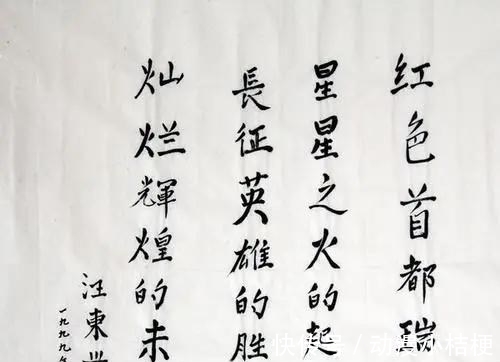 红色首都瑞
星星之火的起
長征英雄的胜
灿烂輝煌的未
汪東
一九九九年
快传号 / 动漫小桔梗